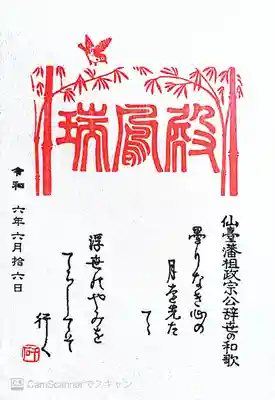 瑞鳳殿
仙臺藩祖政宗公辞世の和歌
曇りなき心の
月を先た
てゝ
浮世のやみを
てらしてそ
行く
令和 六年六月拾六日
CS CamScannerでスキャン